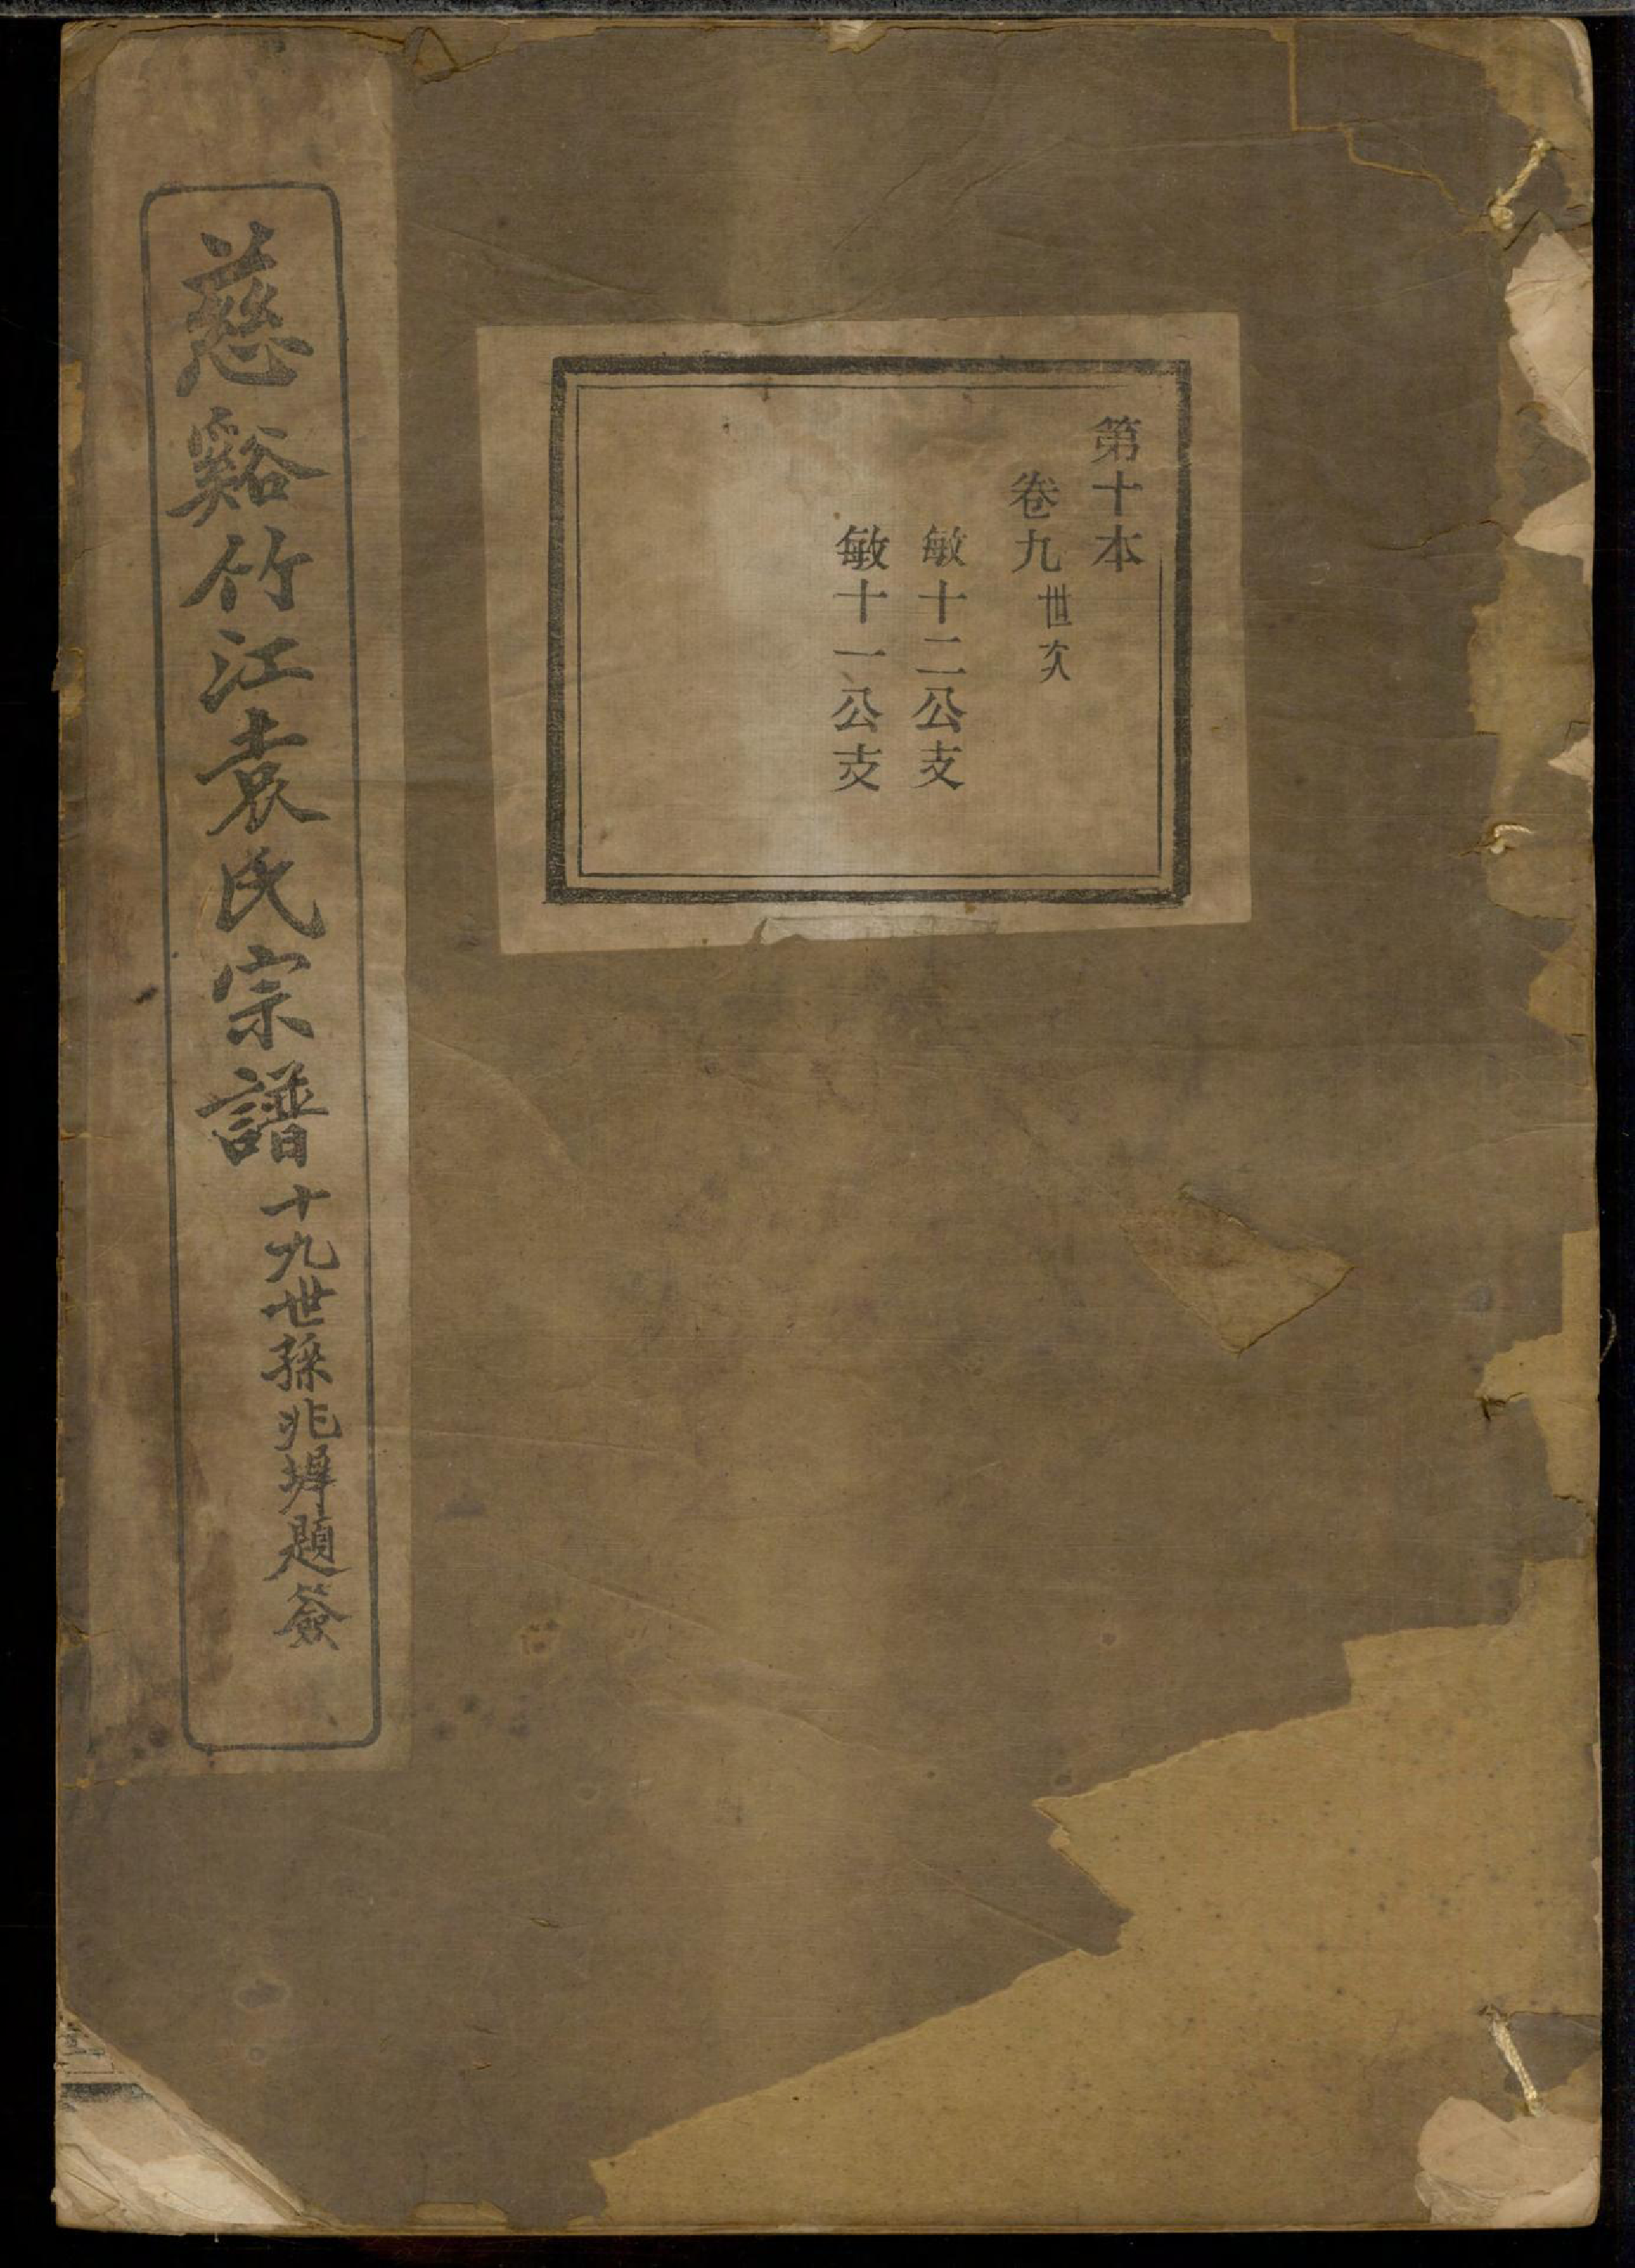 第十本
卷九世次
敏十二公支
敏十一公支
慈谿竹江袁氏宗譜
十九世孫兆墀題簽